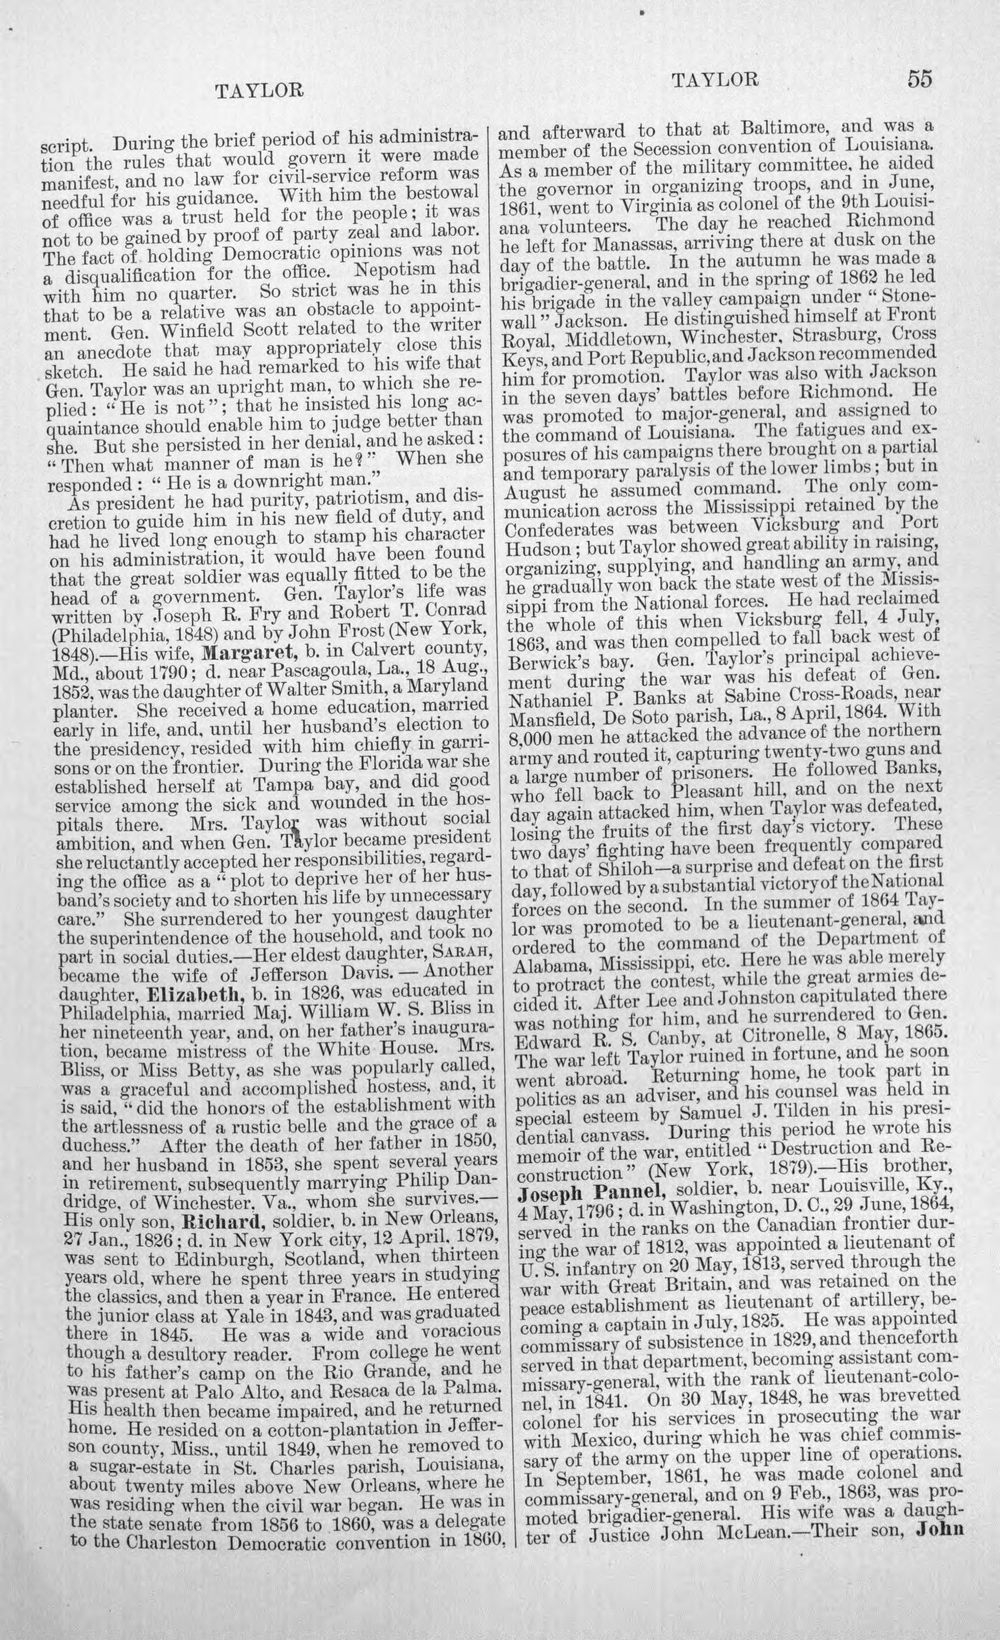 TAYLOR
TAYLOR
55
script. During the brief period of his administra-
tion the rules that would govern it were made
manifest, and no law for civil-service reform was
needful for his guidance. With him the bestowal
of office was a trust held for the people; it was
not to be gained by proof of party zeal and labor.
The fact of holding Democratic opinions was not
a disqualification for the office. Nepotism had
with him no quarter. So strict was he in this
that to be a relative was an obstacle to appoint-
ment. Gen. Winfield Scott related to the writer
an anecdote that may appropriately close this
sketch. He said he had remarked to his wife that
Gen. Taylor was an upright man, to which she re-
plied: “He is not”; that he insisted his long ac-
quaintance should enable him to judge better than
she. But she persisted in her denial, and he asked:
“Then what manner of man is he?” When she
responded: “He is a downright man.”
As president he had purity, patriotism, and dis-
cretion to guide him in his new field of duty, and
had he lived long enough to stamp his character
on his administration, it would have been found
that the great soldier was equally fitted to be the
head of a government. Gen. Taylor's life was
written by Joseph R. Fry and Robert T. Conrad
(Philadelphia, 1848) and by John Frost (New York,
1848).—His wife, Margaret, b. in Calvert county,
Md., about 1790; d. near Pascagoula, La., 18 Aug.,
1852, was the daughter of Walter Smith, a Maryland
planter. She received a home education, married
early in life, and, until her husband's election to
the presidency, resided with him chiefly in garri-
sons or on the frontier. During the Florida war she
established herself at Tampa bay, and did good
service among the sick and wounded in the hos-
pitals there. Mrs. Taylor was without social
ambition, and when Gen. Taylor became president
she reluctantly accepted her responsibilities, regard-
ing the office as a “plot to deprive her of her hus-
band's society and to shorten his life by unnecessary
care.” She surrendered to her youngest daughter
the superintendence of the household, and took no
part in social duties.—Her eldest daughter, SARAH,
became the wife of Jefferson Davis.—Another
daughter, Elizabeth, b. in 1826, was educated in
Philadelphia, married Maj. William W. S. Bliss in
her nineteenth year, and, on her father's inaugura-
tion, became mistress of the White House. Mrs.
Bliss, or Miss Betty, as she was popularly called,
was a graceful and accomplished hostess, and, it
is said, “did the honors of the establishment with
the artlessness of a rustic belle and the grace of a
duchess.” After the death of her father in 1850,
and her husband in 1853, she spent several years
in retirement, subsequently marrying Philip Dan-
dridge, of Winchester, Va., whom she survives.—
His only son, Richard, soldier, b. in New Orleans,
27 Jan., 1826; d. in New York city, 12 April, 1879,
was sent to Edinburgh, Scotland, when thirteen
years old, where he spent three years in studying
the classics, and then a year in France. He entered
the junior class at Yale in 1843, and was graduated
there in 1845. He was a wide and voracious
though a desultory reader. From college he went
to his father's camp on the Rio Grande, and he
was present at Palo Alto, and Resaca de la Palma.
His health then became impaired, and he returned
home. He resided on a cotton-plantation in Jeffer-
son county, Miss., until 1849, when he removed to
a sugar-estate in St. Charles parish, Louisiana,
about twenty miles above New Orleans, where he
was residing when the civil war began. He was in
the state senate from 1856 to 1860, was a delegate
to the Charleston Democratic convention in 1860,
and afterward to that at Baltimore, and was a
member of the Secession convention of Louisiana.
As a member of the military committee, he aided
the governor in organizing troops, and in June,
1861, went to Virginia as colonel of the 9th Louisi-
ana volunteers. The day he reached Richmond
he left for Manassas, arriving there at dusk on the
day of the battle. In the autumn he was made a
brigadier-general, and in the spring of 1862 he led
his brigade in the valley campaign under “Stone-
wall” Jackson. He distinguished himself at Front
Royal, Middletown, Winchester, Strasburg, Cross
Keys, and Port Republic, and Jackson recommended
him for promotion. Taylor was also with Jackson
in the seven days' battles before Richmond. He
was promoted to major-general, and assigned to
the command of Louisiana. The fatigues and ex-
posures of his campaigns there brought on a partial
and temporary paralysis of the lower limbs; but in
August he assumed command. The only com-
munication across the Mississippi retained by the
Confederates was between Vicksburg and Port
Hudson; but Taylor showed great ability in raising,
organizing, supplying, and handling an army, and
he gradually won back the state west of the Missis-
sippi from the National forces. He had reclaimed
the whole of this when Vicksburg fell, 4 July,
1863, and was then compelled to fall back west of
Berwick's bay. Gen. Taylor's principal achieve-
ment during the war was his defeat of Gen.
Nathaniel P. Banks at Sabine Cross-Roads, near
Mansfield, De Soto parish, La., 8 April, 1864. With
8,000 men he attacked the advance of the northern
army and routed it, capturing twenty-two guns and
a large number of prisoners. He followed Banks,
who fell back to Pleasant hill, and on the next
day again attacked him, when Taylor was defeated,
losing the fruits of the first day's victory. These
two days' fighting have been frequently compared
to that of Shiloh—a surprise and defeat on the first
day, followed by a substantial victory of the National
forces on the second. In the summer of 1864 Tay-
lor was promoted to be a lieutenant-general, and
ordered to the command of the Department of
Alabama, Mississippi, etc. Here he was able merely
to protract the contest, while the great armies de-
cided it. After Lee and Johnston capitulated there
was nothing for him, and he surrendered to Gen.
Edward R. S. Canby, at Citronelle, 8 May, 1865.
The war left Taylor ruined in fortune, and he soon
went abroad. Returning home, he took part in
politics as an adviser, and his counsel was held in
special esteem by Samuel J. Tilden in his presi-
dential canvass. During this period he wrote his
memoir of the war, entitled “Destruction and Re-
construction” (New York, 1879).—His brother,
Joseph Pannel, soldier, b. near Louisville, Ky.,
4 May, 1796; d. in Washington, D. C., 29 June, 1864,
served in the ranks on the Canadian frontier dur-
ing the war of 1812, was appointed a lieutenant of
U. S. infantry on 20 May, 1813, served through the
war with Great Britain, and was retained on the
peace establishment as lieutenant of artillery, be-
coming a captain in July, 1825. He was appointed
commissary of subsistence in 1829, and thenceforth
served in that department, becoming assistant com-
missary-general, with the rank of lieutenant-colo-
nel, in 1841. On 30 May, 1848, he was brevetted
colonel for his services in prosecuting the war
with Mexico, during which he was chief commis-
sary of the army on the upper line of operations.
In September, 1861, he was made colonel and
commissary-general, and on 9 Feb., 1863, was pro-
moted brigadier-general. His wife was a daugh-
ter of Justice John McLean.—Their son, John